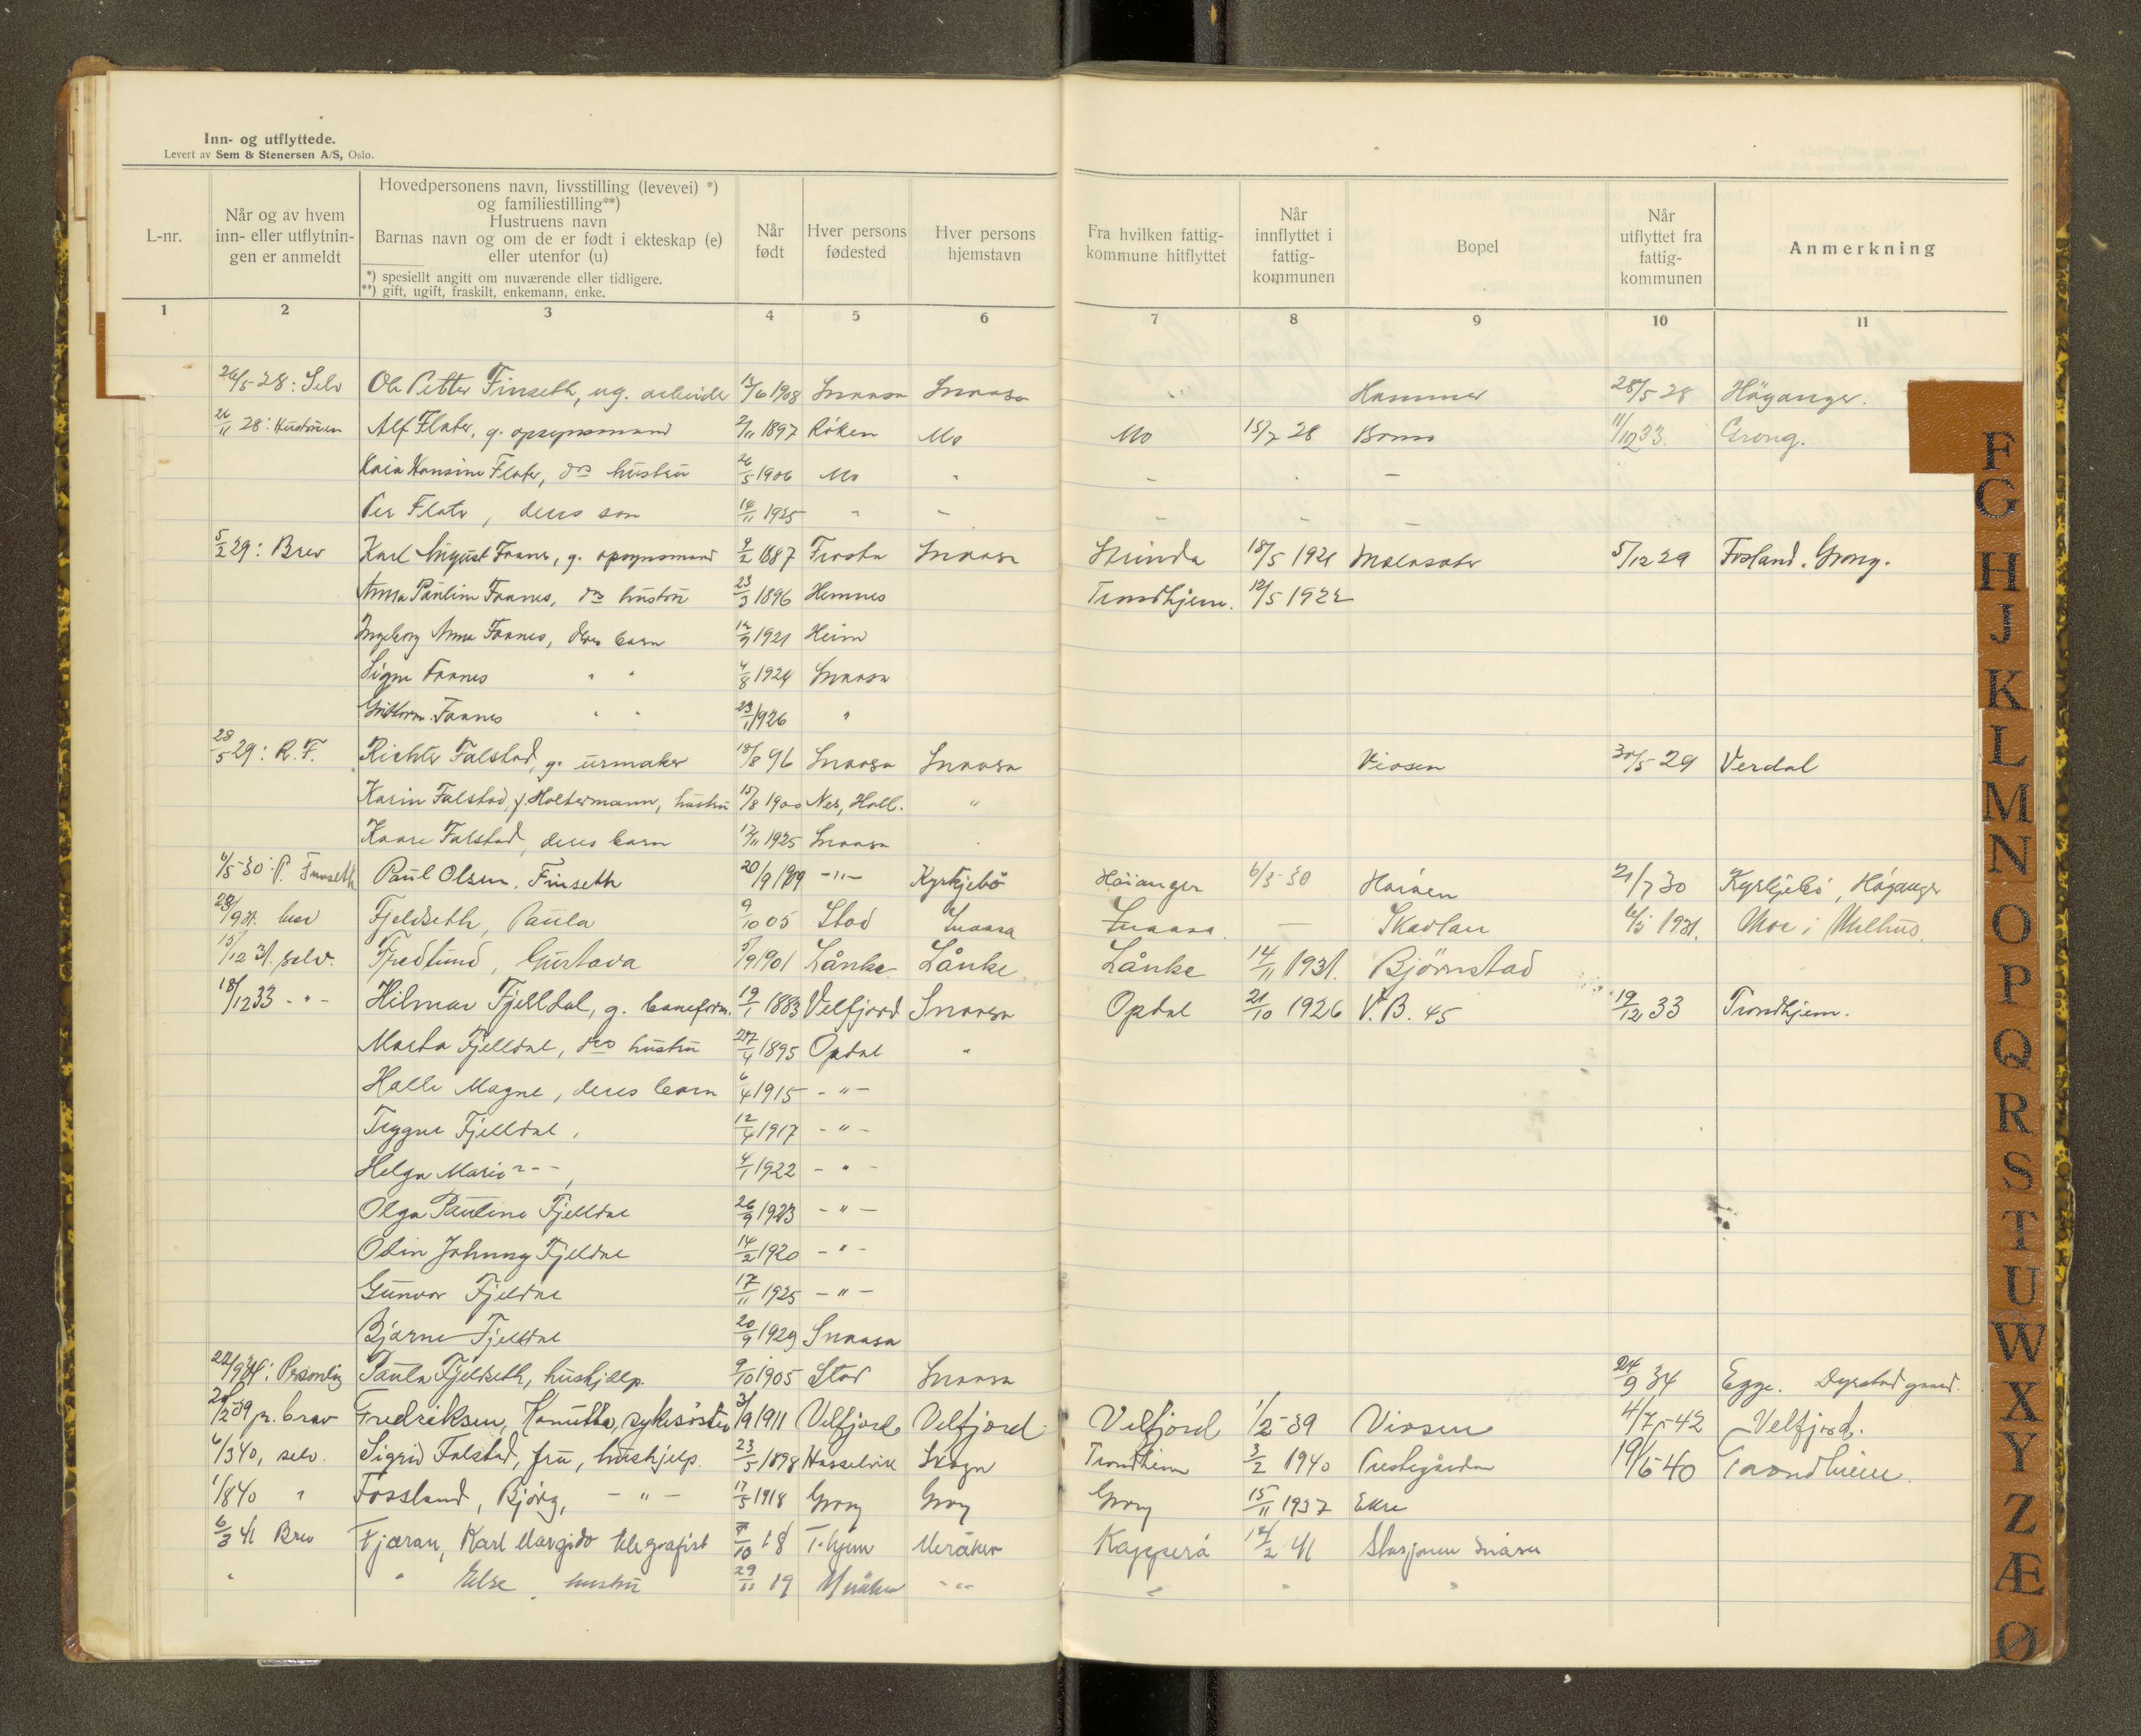 Inn- og utflyttede.
Levert av Sem & Stenersen A/S, Oslo.
L-nr. Når og av hvem inn- eller utflytnin-gen er anmeldt Hovedpersonens navn, livsstilling (levevei) *) og familiestilling**) Hustruens navn Barnas navn og om de er født i ekteskap (e) eller utenfor (u) *) spesiellt angitt om nuværende eller tidligere. **) gift, ugift, fraskilt, enkemann, enke. Når født Hver persons fødested Hver persons hjemstavn Fra hvilken fattig-kommune hitflyttet Når innflyttet i fattig-kommunen Bopel Når utflyttet fra fattig-kommunen Anmerkning
1 2 3 4 5 6 7 8 9 10 11
26/5-28: Selv Ole Petter Finseth, ug. arbeider 12/6 1908 Snaasa Snaasa Hammer 28/5-28 Höyanger.
26/11 28: Hustruen Alf Flater, g. opsynsmand 2/11 1897 Röken Mo Mo 15/7 28 Bomo 11/10 33. Grong.
Kaia Hansine Flater, ds hustru 26/5 1906 Mo " - " -
Per Flater, deres son 14/11 1925 " - - - -
5/2 29: Brev Karl August Faanes, g. opsynsmand 9/2 1887 Frosta Snaasa Strinda 18/5 1921 5/12 29 Fosland. Grong.
Anna Pauline Faanes, ds hustru 23/3 1896 Hemnes Trondhjem. 12/5 1922
Ingeborg Anna Faanes, deres barn 12/9 1921 Heim
Signe Faanes " " 4/8 1924 Snaasa
Guttorm. Faanes " " 23/1 1926 "
28/5 29: R. F. Richter Falstad, g. urmaker 18/8 96 Snaasa Snaasa Viosen 30/5-29 Verdal
Karin Falstad, f. Holtermann, hustru 15/8 1900 Nes, Hall. "
Kaare Falstad, deres barn 12/11 1925 Snaasa
6/5-30: P. Finseth Paul Olsen. Finseth 20/9 1909 -"- Kyrkjebö Höianger 6/5-30 21/7 30 Kyrkjebö, Höyanger
29/9 31. Fjeldseth, Paula 9/10 05 Stod Snaasa Snaasa. - Skavlan 1931. Moe i Melhus.
15/12 31. selv. Fredlund, Gustava 5/9 1901 Lånke Lånke Lånke 14/11 1931. Björnstad
18/12 33 -"- Hilmar Fjelldal, g. baneform. 19/1 1883 Velfjord Snaasa Opdal 21/10 1926 V. B. 45 19/12 33 Trondhjem.
Marta Fjelldal, ds hustru 27/4 1895 Opdal "
Halle Magne, deres barn 6/4 1915 -"-
Tryggve Fjelldal, 12/4 1917 -"-
Helga Marie -"-, 4/1 1922 -"-
Olga Pauline Fjelldal 26/9 1923 -"-
Odin Johnny Fjeldal 14/2 1920 -"-
Gunvor Fjeldal 17/11 1925 -"-
Bjarne Fjeldal 20/9 1929 Snaasa
22/9 34: Personlig Paula Fjeldseth, hushjelp. 9/10 1905 Stod Snaasa 24/9 34 Egge. Dyrstad gaard.
20/2-39 pr. brev Fredriksen, Hanutta, sykesöster 3/9 1911 Velfjord Velfjord Velfjord 1/2-39 Viosen 4/7-42 Velfjord.
6/3 40, selv. Sigrid Falstad, fru, hushjelp. 23/5 1898 Hasselvik Trondheim 3/2 1940 Prestegården 19/5-40 Trondheim.
1/8 40 " Fossland, Bjørg, -"- 17/5 1918 Grong Grong Grong 15/11 1937 Ekre
6/3 41 Brev Fjæran, Karl Margido telegrafist 7/10 18 T.hjem Meråker Kopperå 12/2 41 Stasjonen Snåsa
" " Else, hustru 29/11 19 Meråker -"- " " "
F
G
H
J
K
L
M
N
O
P
Q
R
S
T
U
W
X
Y
Z
Æ
Ø